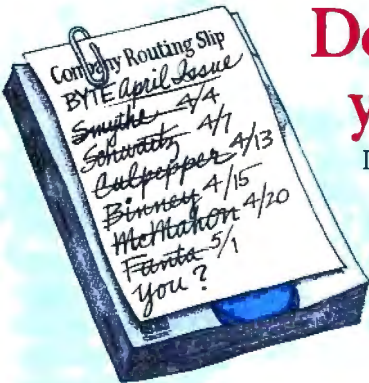 Company Routing Slip
BYTE April Issue
Smythe 4/4
Schwartz 4/7
Culpepper 4/13
Binney 4/15
McMahon 4/20
Funta 5/1
You?